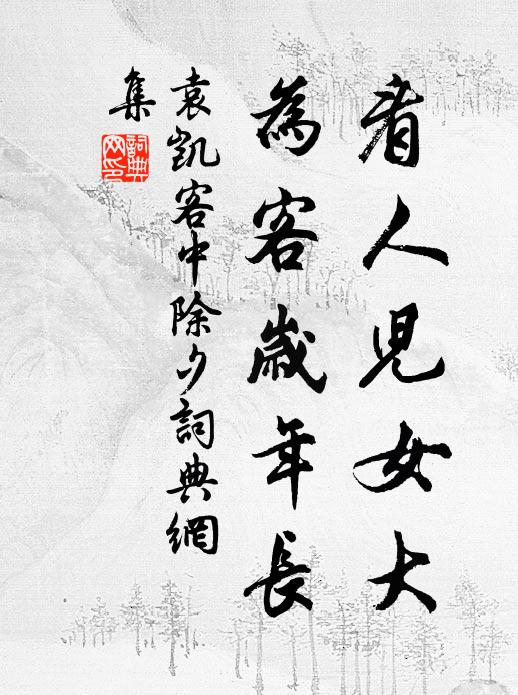 看人兒女大
為客歲年長
袁凱客中除夕詞典網
集
詞典
网印